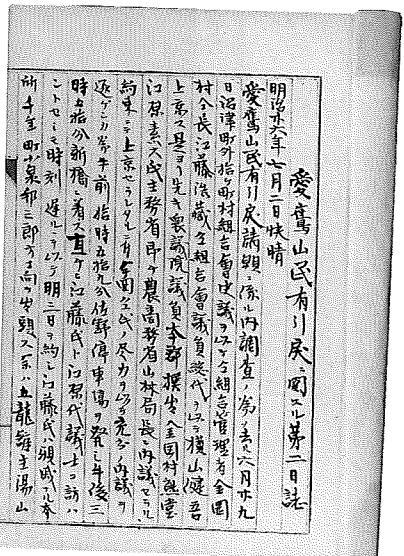 愛鷹山民有引戻ニ関スル第一日誌
明治廿六年七月二日快晴
愛鷹山民有引戻請願ニ係ル内調査ノ為メ去ル六月廿九
日沼津町外拾ヶ町村組合會決議ヲ以テ仝組合管理者金岡
村全長江藤浩藏仝組合會議員総代ヲ以テ横山健吾
上京ス是ヨリ先キ衆議院議員本郡撰出金岡村熊堂
江原素六氏主務省即チ農商務省山林局長ニ内議セラレ
約束ニテ上京セラレタル有ニ仝氏ノ尽力ヲ以テ充分ノ内議ヲ
遂ゲン為午前拾時五拾九分佐野停車場ヲ発シ午後三
時五拾分新橋ニ着ス直ケニ江藤氏ト江原代議士ニ訪ハ
ントセシモ時刻遅レシヲ以テ明三日ヲ約シ江藤氏ハ親戚ナル本
所千歳町小泉邦二郎方ニ向ヲ岩頭ス余ハ五龍舞主湯山